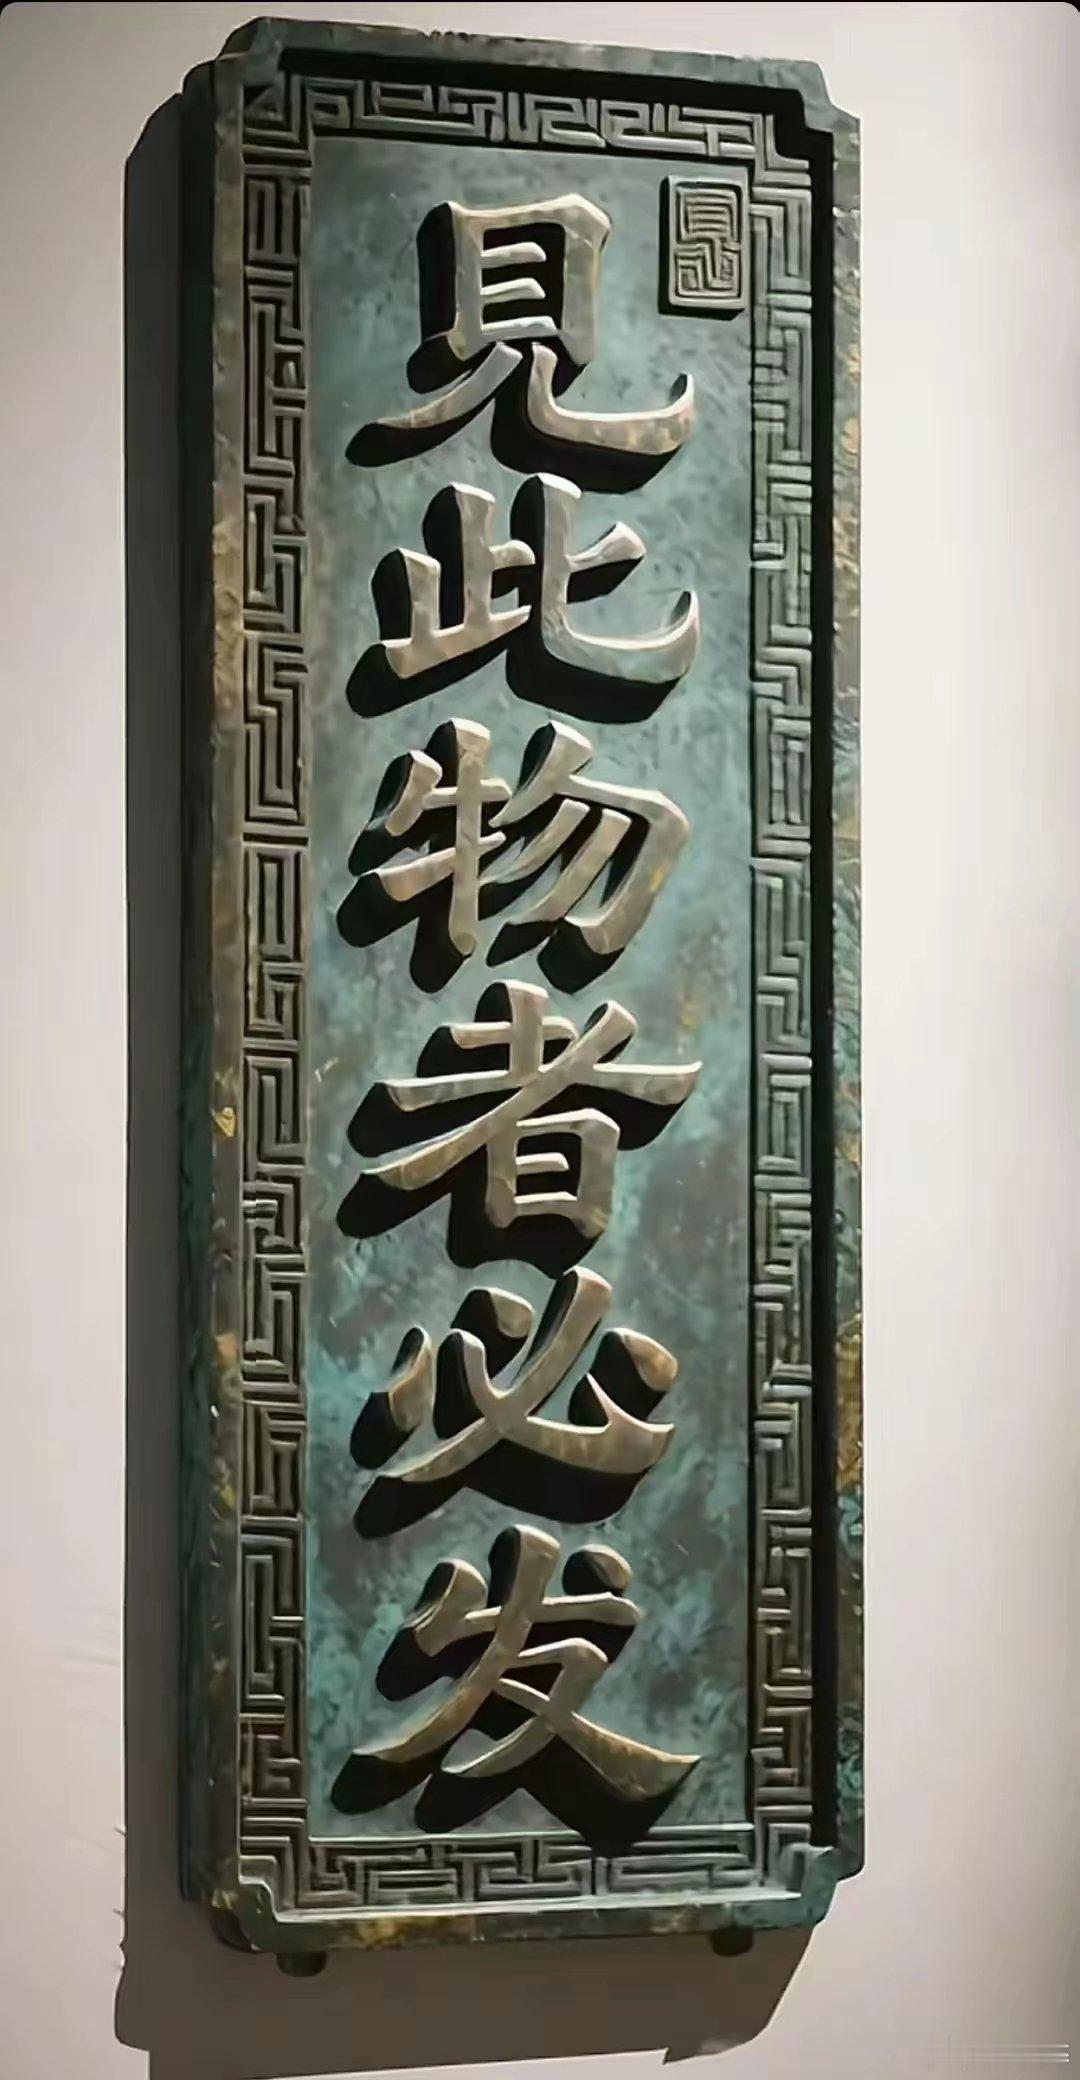 見此物者必发